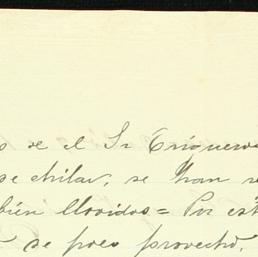 s de el Sr Trigueros
se chilar, se han se
bién llovidos = Por est
se poco provecho.